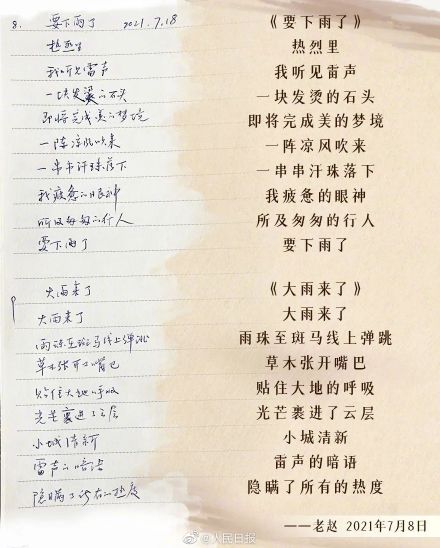 8. 要下雨了 2021.7.18
热烈里
我听见雷声
一块发烫的石头
即将完成美的梦境
一阵凉风吹来
一串串汗珠落下
我疲惫的眼神
所及匆匆的行人
要下雨了
大雨来了
大雨来了
雨珠至斑马线上弹跳
草木张开嘴巴
贴住大地的呼吸
光芒裹进了云层
小城清新
雷声的暗语
隐瞒了所有的热度
《要下雨了》
热烈里
我听见雷声
一块发烫的石头
即将完成美的梦境
一阵凉风吹来
一串串汗珠落下
我疲惫的眼神
所及匆匆的行人
要下雨了
《大雨来了》
大雨来了
雨珠至斑马线上弹跳
草木张开嘴巴
贴住大地的呼吸
光芒裹进了云层
小城清新
雷声的暗语
隐瞒了所有的热度
——老赵 2021年7月8日
@人民日报